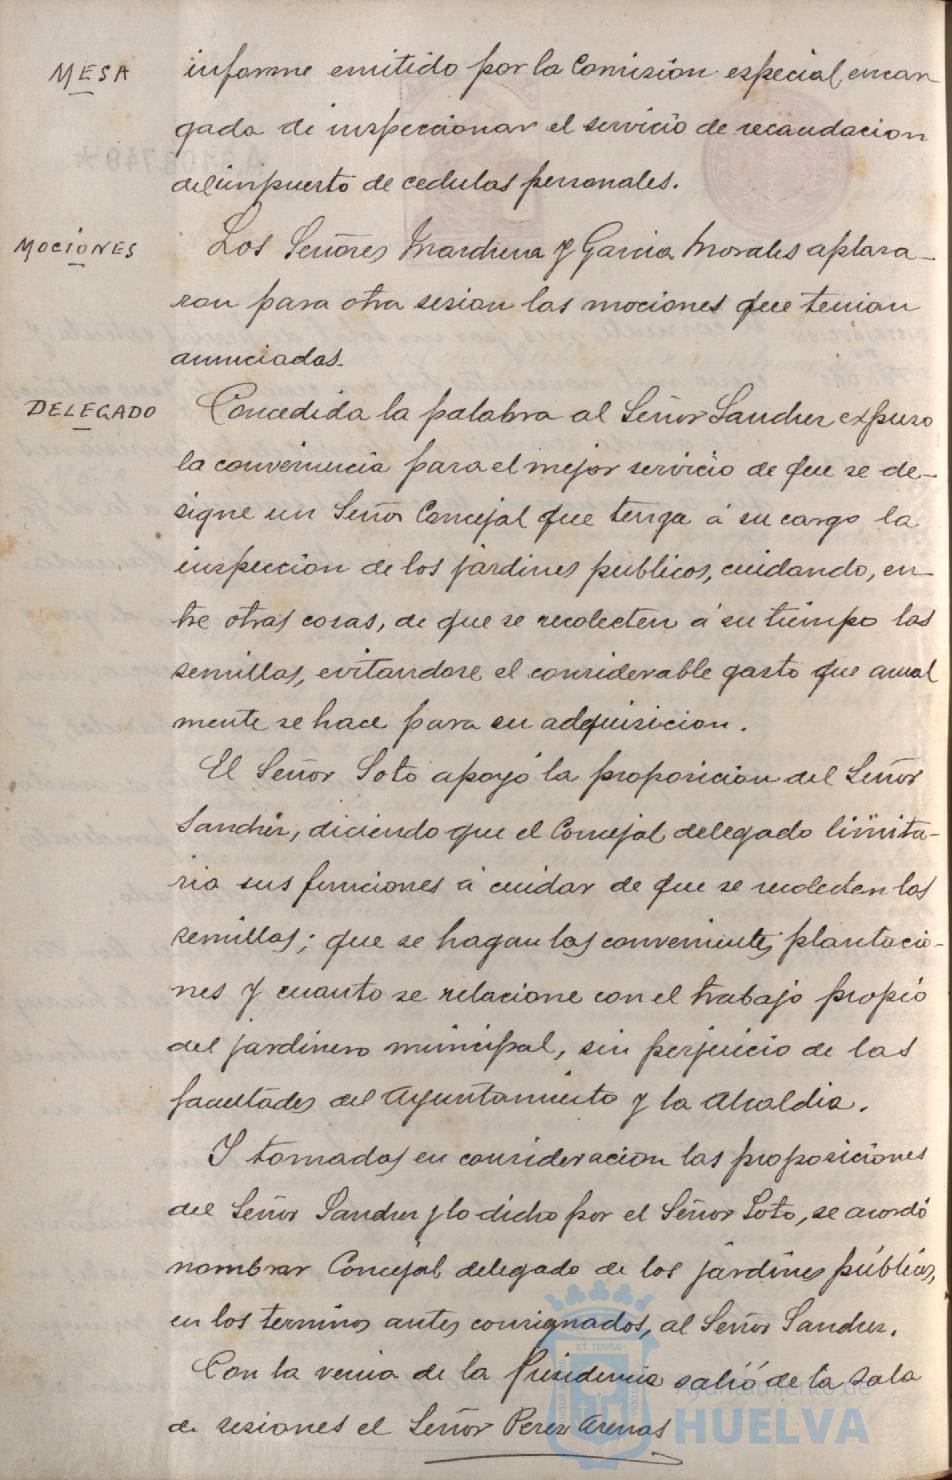 MESA
informe emitido por la Comisión especial encar
gada de inspeccionar el servicio de recaudacion
del impuesto de cedulas personales.
MOCIONES
Los Señores Marchena y Garcia Morales aplaza-
ron para otra sesion las mociones que tenian
anunciadas.
DELEGADO
Concedida la palabra al Señor Sanchez expuso
la conveniencia para el mejor servicio de que se de-
signe un Señor Concejal que tenga á su cargo la
inspeccion de los jardines publicos, cuidando, en-
tre otras cosas, de que se recolecten á su tiempo las
semillas, evitandose el considerable gasto que anual
mente se hace para su adquisicion.
El Señor Soto apoyó la proposicion del Señor
Sanchez, diciendo que el Concejal delegado limita-
ria sus funciones á cuidar de que se recolecten las
semillas; que se hagan las convenientes plantacio-
nes y cuanto se relacione con el trabajo propio
del jardinero municipal, sin perjuicio de las
facultades del Ayuntamiento y la Alcaldia.
Y tomadas en consideracion las proposiciones
del Señor Sanchez y lo dicho por el Señor Soto, se acordó
nombrar Concejal delegado de los jardines públicos,
en los terminos antes consignados, al Señor Sanchez.
Con la venia de la Presidencia salió de la sala
de sesiones el Señor Perez Arenas
Ayuntamiento de
HUELVA